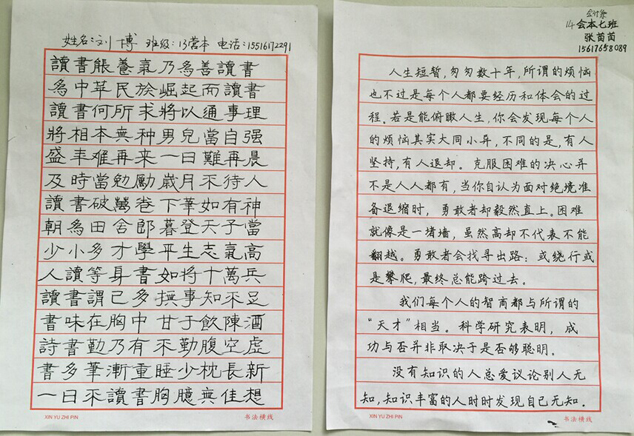 姓名:刘博 班级:13营本 电话:15516172291
讀書能養氣乃為善讀書
為中華民於崛起而讀書
讀書何所求將以通事理
將相本無种男兒當自强
盛年难再来一日難再晨
及時當勉勵歲月不待人
讀書破萬卷下筆如有神
朝為田舍郎暮登天子當
少小多才學平生志氣高
人讀等身書如将十萬兵
讀書謂已多撫事知不足
書味在胸中甘于飲陳酒
詩書勤乃有不勤腹空虚
書多筆漸重睡少枕長新
一日不讀書胸臆無佳想
XIN YU ZHI PIN 书法横线
会计系
14会本七班
张茵茵
15617658089
人生短暂,匆匆数十年,所谓的烦恼
也不过是每个人都要经历和体会的过
程。若是能俯瞰人生,你会发现每个人
的烦恼其实大同小异,不同的是,有人
坚持,有人退却。克服困难的决心并
不是人人都有,当你自认为面对绝境准
备退缩时,勇敢者却毅然直上。困难
就像是一堵墙,虽然高却不代表不能
翻越。勇敢者会找寻出路:或绕行或
是攀爬,最终总能跨过去。
我们每个人的智商都与所谓的
“天才”相当。科学研究表明,成
功与否并非取决于是否够聪明。
没有知识的人总爱议论别人无
知,知识丰富的人时时发现自己无知。
XIN YU ZHI PIN 书法横线